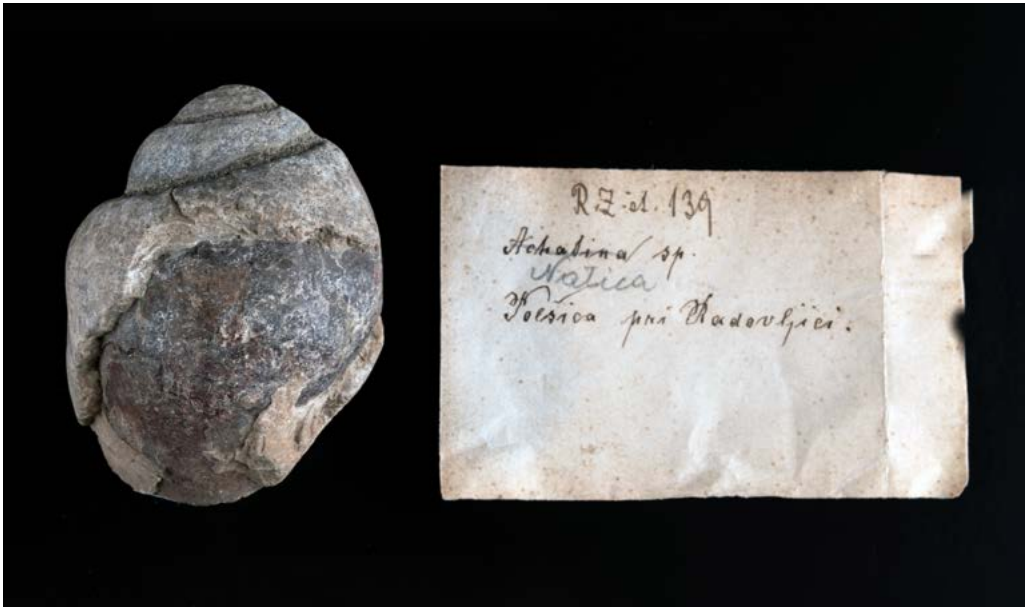 R.Z. št. 139
Achatina sp.
Natica
pri Radovljici.